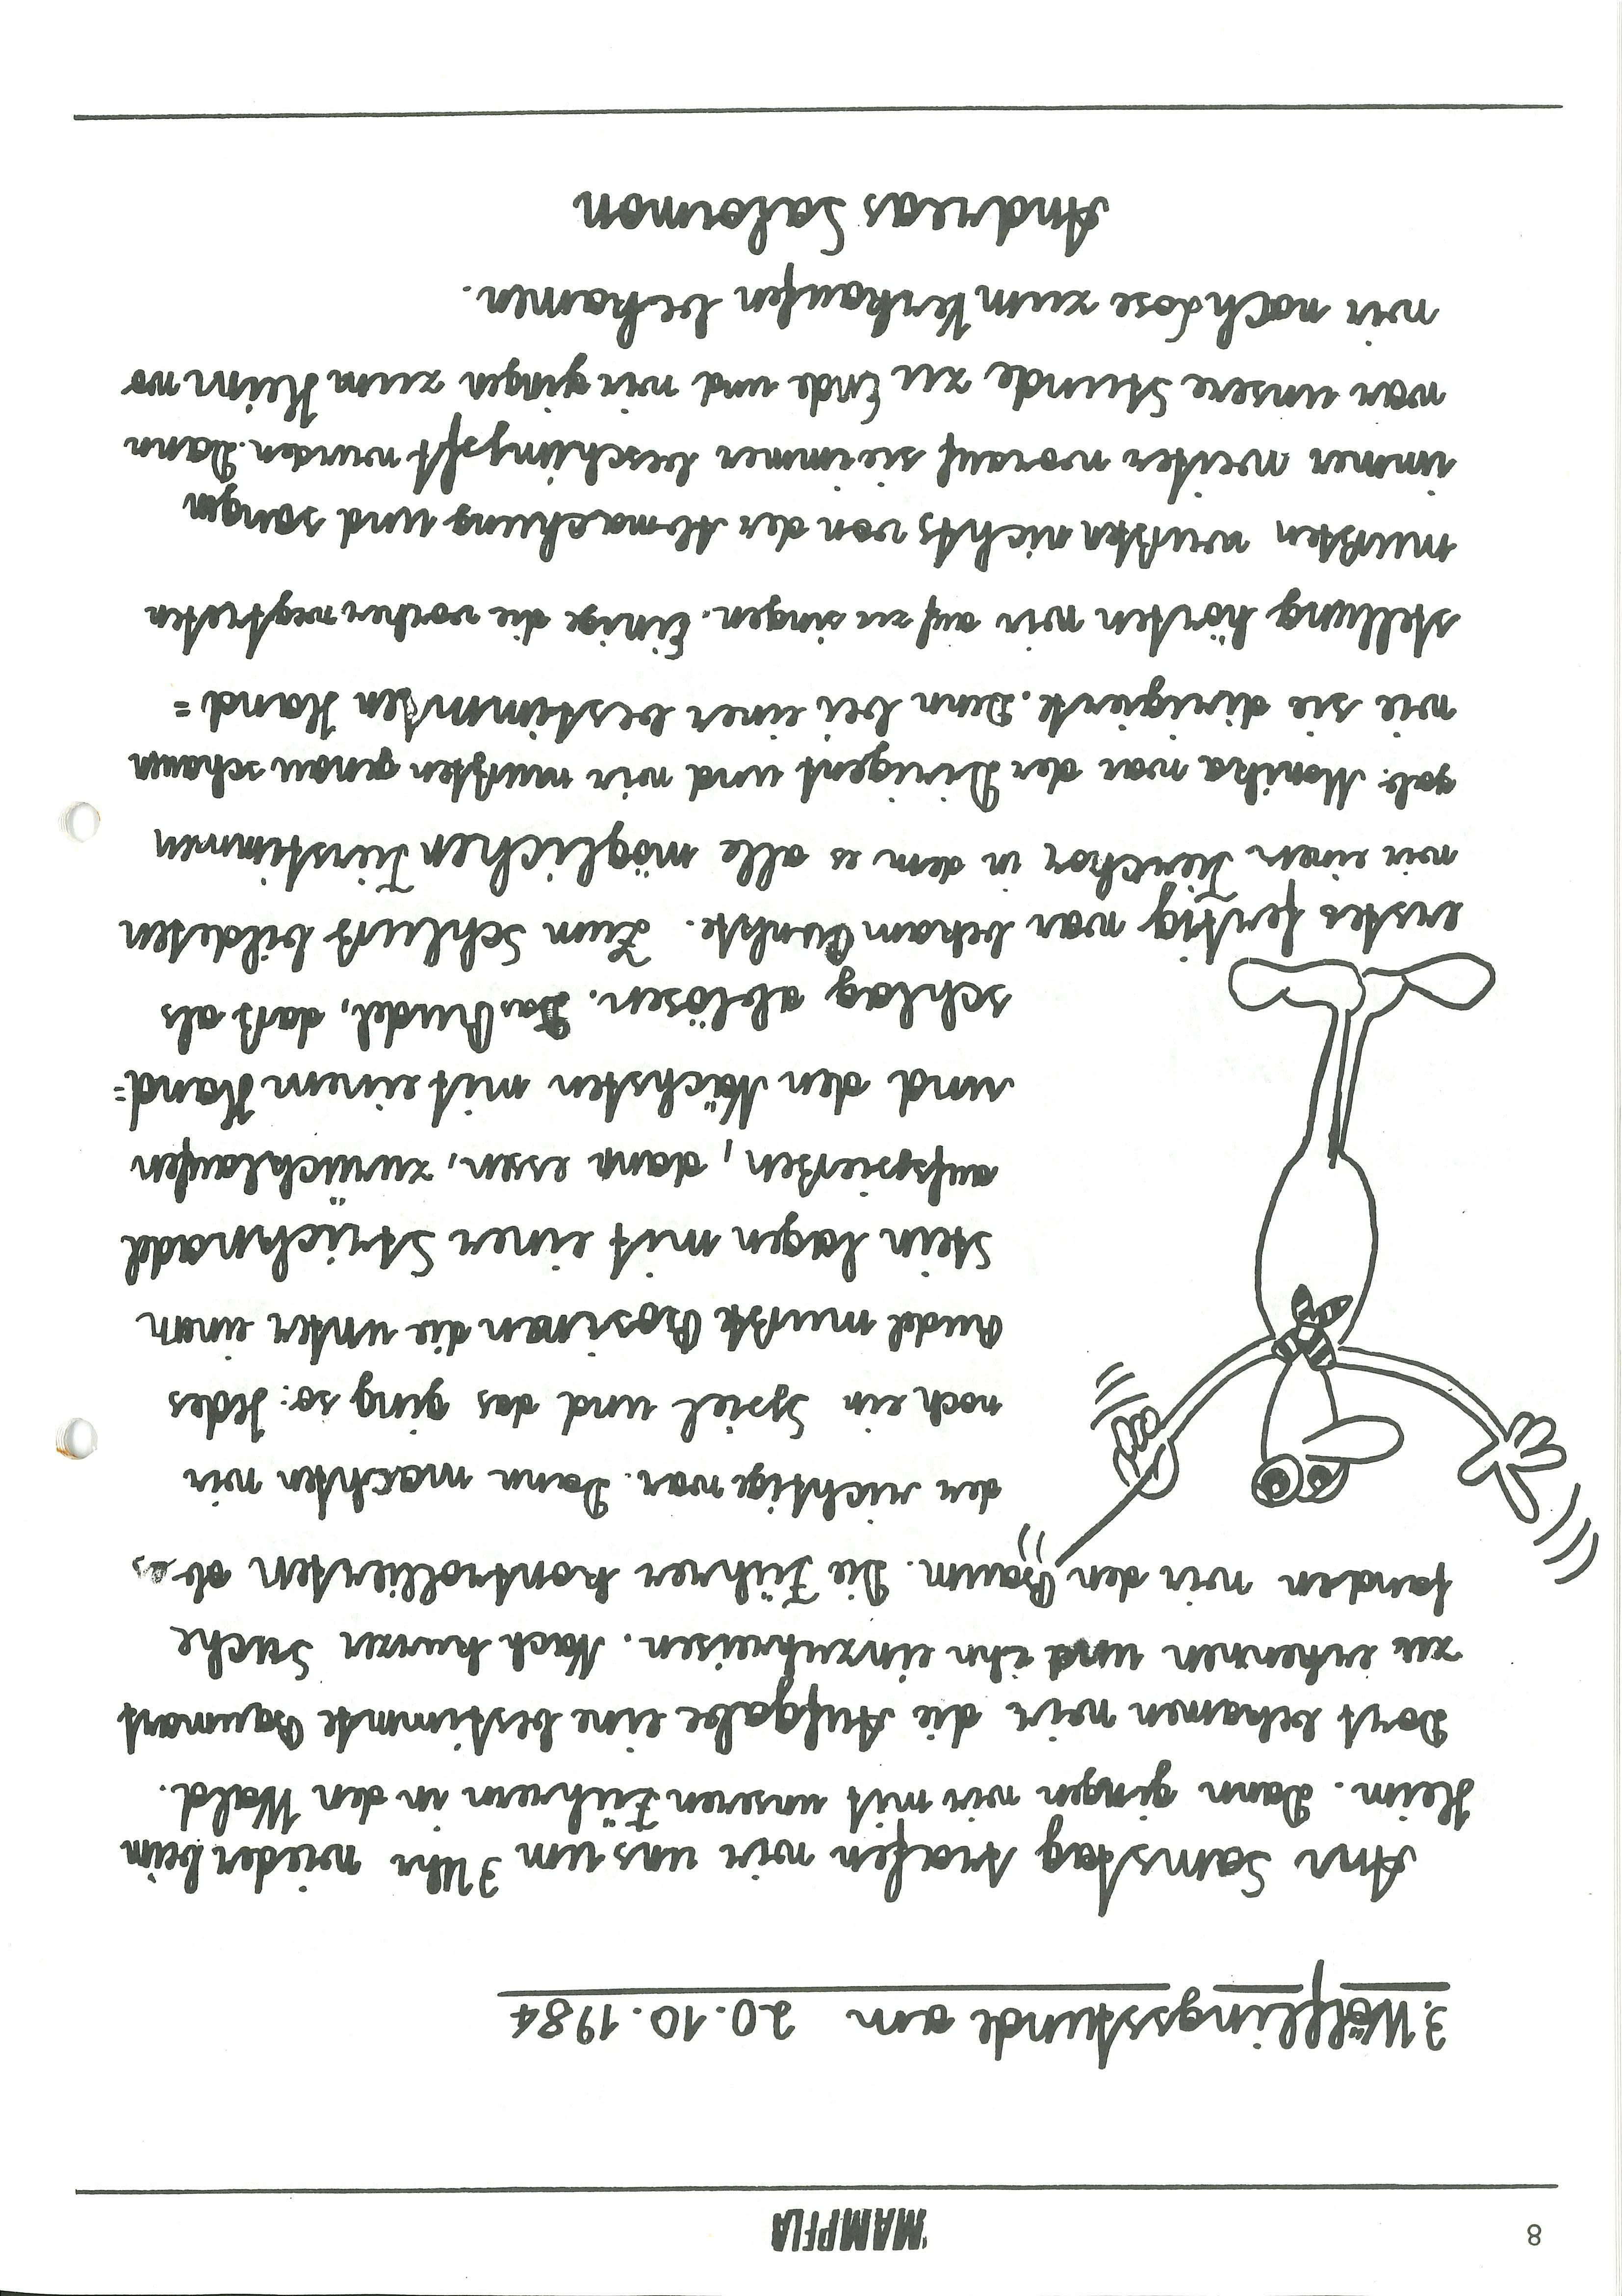 8
MAMPFLA
3. Wölflingsstunde am 20.10.1984
Am Samstag trafen wir uns um 3 Uhr wieder beim
Heim. Dann gingen wir mit unseren Führern in den Wald.
Dort bekamen wir die Aufgabe eine bestimmte Baumart
zu erkennen und ihn einzukreisen. Nach kurzer Suche
fanden wir den Baum. Die Führer kontrollierten ob es
der richtige war. Dann machten wir
noch ein Spiel und das ging so: Jedes
Rudel mußte Rosinen die unter einen
Stein lagen mit einer Strichnadel
aufspießen, dann essen, zurücklaufen
und den Nächsten mit einem Hand=
schlag ablösen. Das Rudel, daß als
erstes fertig war bekam Punkte. Zum Schluß bildeten
wir einen Tierchor in dem es alle möglichen Tierstimmen
gab. Monika war der Dirigent und wir mußten genau schauen
wie sie dirigierte. Denn bei einer bestimmten Hand=
stellung hörten wir auf zu singen. Einige die vorher wegtreten
mußten wußten nichts von der Abmachung und sangen
immer weiter worauf sie immer beschimpft wurden. Dann
war unsere Stunde zu Ende und wir gingen zum Heim wo
wir noch Lose zum Verkaufen bekamen.
Andreas Salomon